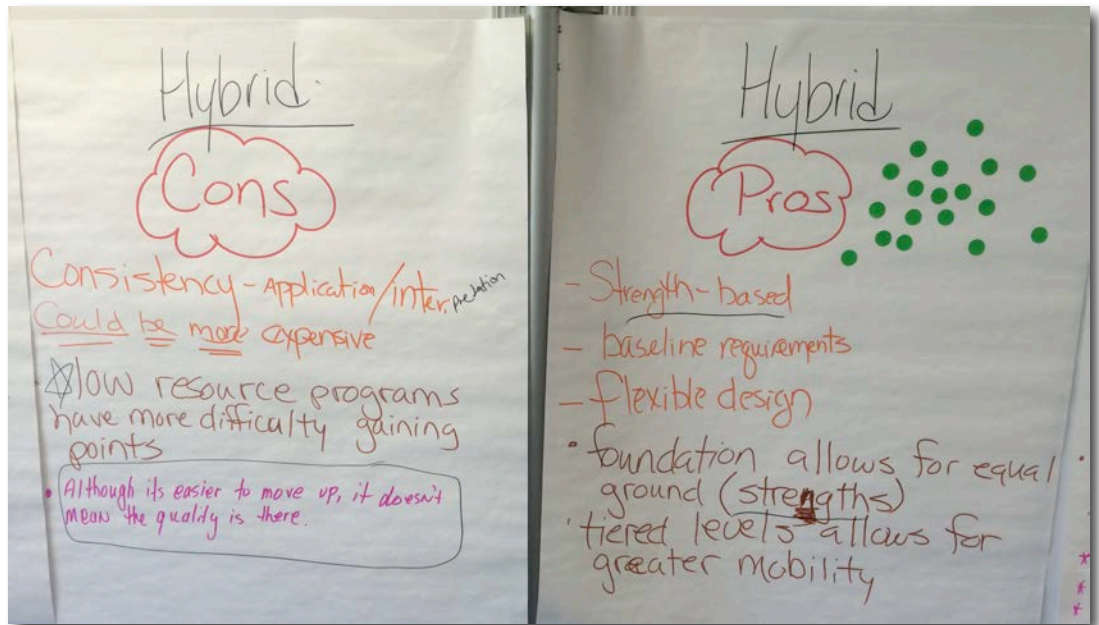 Hybrid
Cons
Consistency - Application/inter.pretation
Could be more expensive
☆low resource programs
have more difficulty gaining
points
• Although its easier to move up, it doesn't
mean the quality is there.
Hybrid
Pros
- Strength-based
- baseline requirements
- flexible design
• foundation allows for equal
ground (strengths)
• tiered levels allows for
greater mobility